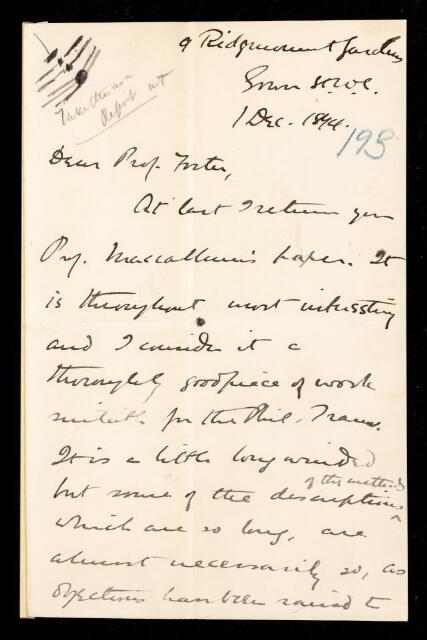 9 Ridgmount Gardens
Gower St. W.C.
1 Dec. 1894.
193
Taken as a
Report
Dear Prof. Foster,
At last I return you
Prof. Maccallum's paper. It
is throughout most interesting
and I consider it a
thoroughly good piece of work
suitable for the Phil. Trans.
It is a little long winded
of the methods
but some of the descriptions
which are so long, are
almost necessarily so, as
objections have been raised to